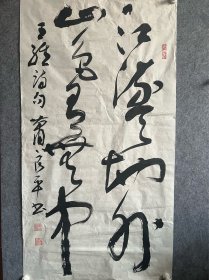 江流天地外
山色有無中
王維詩句 良平书